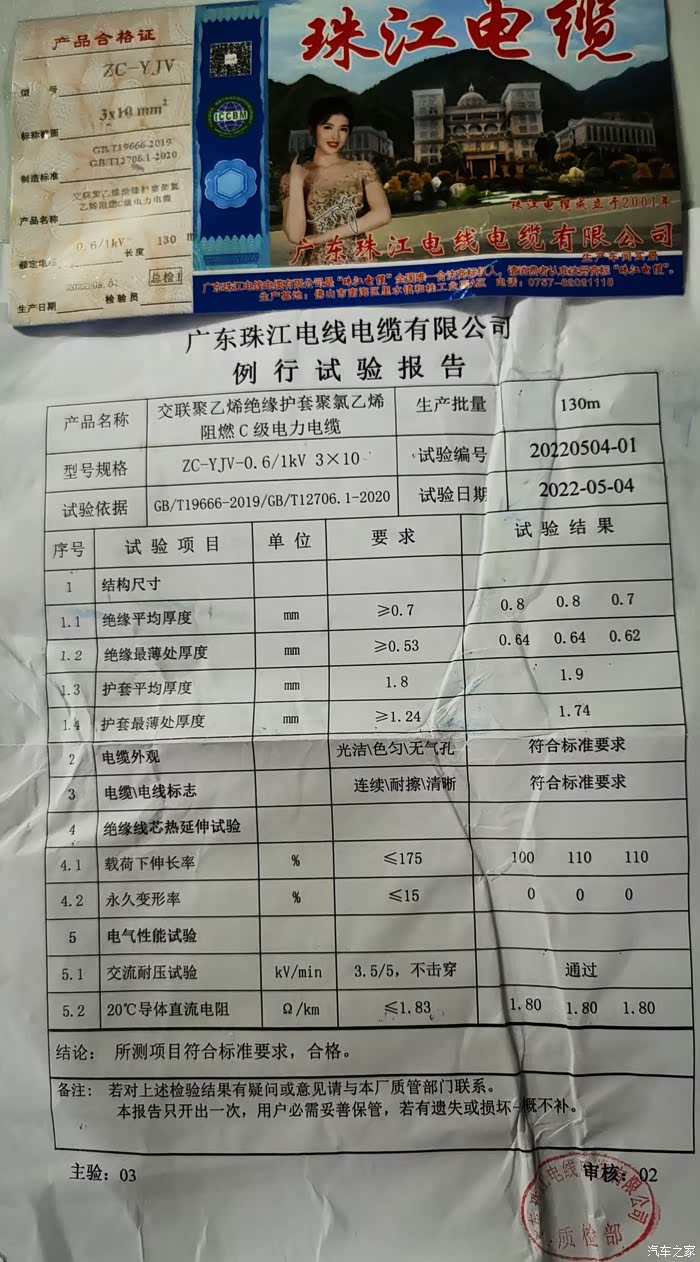 产品合格证
型 号 ZC-YJV
标称截面 3x10 mm²
制造标准 GB/T19666-2019
GB/T12706.1-2020
产品名称 交联聚乙烯绝缘护套聚氯
乙烯阻燃C级电力电缆
额定电压 0.6/1kV 长度 130 m
生产日期 检验员 总检1
ICCBM
珠江电缆
珠江电缆成立于2001年
广东珠江电线电缆有限公司
生产车间实景
广东珠江电线电缆有限公司是“珠江电缆”全国唯一合法商标权人,请消费者认准注册商标“珠江电缆”。
生产基地:佛山市南海区里水镇和桂工业园A区 电话:0757-82021118
广东珠江电线电缆有限公司
例行试验报告
产品名称 交联聚乙烯绝缘护套聚氯乙烯
阻燃C级电力电缆 生产批量 130m
型号规格 ZC-YJV-0.6/1kV 3×10 试验编号 20220504-01
试验依据 GB/T19666-2019/GB/T12706.1-2020 试验日期 2022-05-04
序号 试验项目 单位 要求 试验结果
1 结构尺寸
1.1 绝缘平均厚度 mm ≥0.7 0.8 0.8 0.7
1.2 绝缘最薄处厚度 mm ≥0.53 0.64 0.64 0.62
1.3 护套平均厚度 mm 1.8 1.9
1.4 护套最薄处厚度 mm ≥1.24 1.74
2 电缆外观 光洁\色匀\无气孔 符合标准要求
3 电缆\电线标志 连续\耐擦\清晰 符合标准要求
4 绝缘线芯热延伸试验
4.1 载荷下伸长率 % ≤175 100 110 110
4.2 永久变形率 % ≤15 0 0 0
5 电气性能试验
5.1 交流耐压试验 kV/min 3.5/5,不击穿 通过
5.2 20℃导体直流电阻 Ω/km ≤1.83 1.80 1.80 1.80
结论: 所测项目符合标准要求,合格。
备注: 若对上述检验结果有疑问或意见请与本厂质管部门联系。
本报告只开出一次,用户必需妥善保管,若有遗失或损坏一概不补。
主验:03 审核:02
广东珠江电线电缆有限公司
质检部
汽车之家